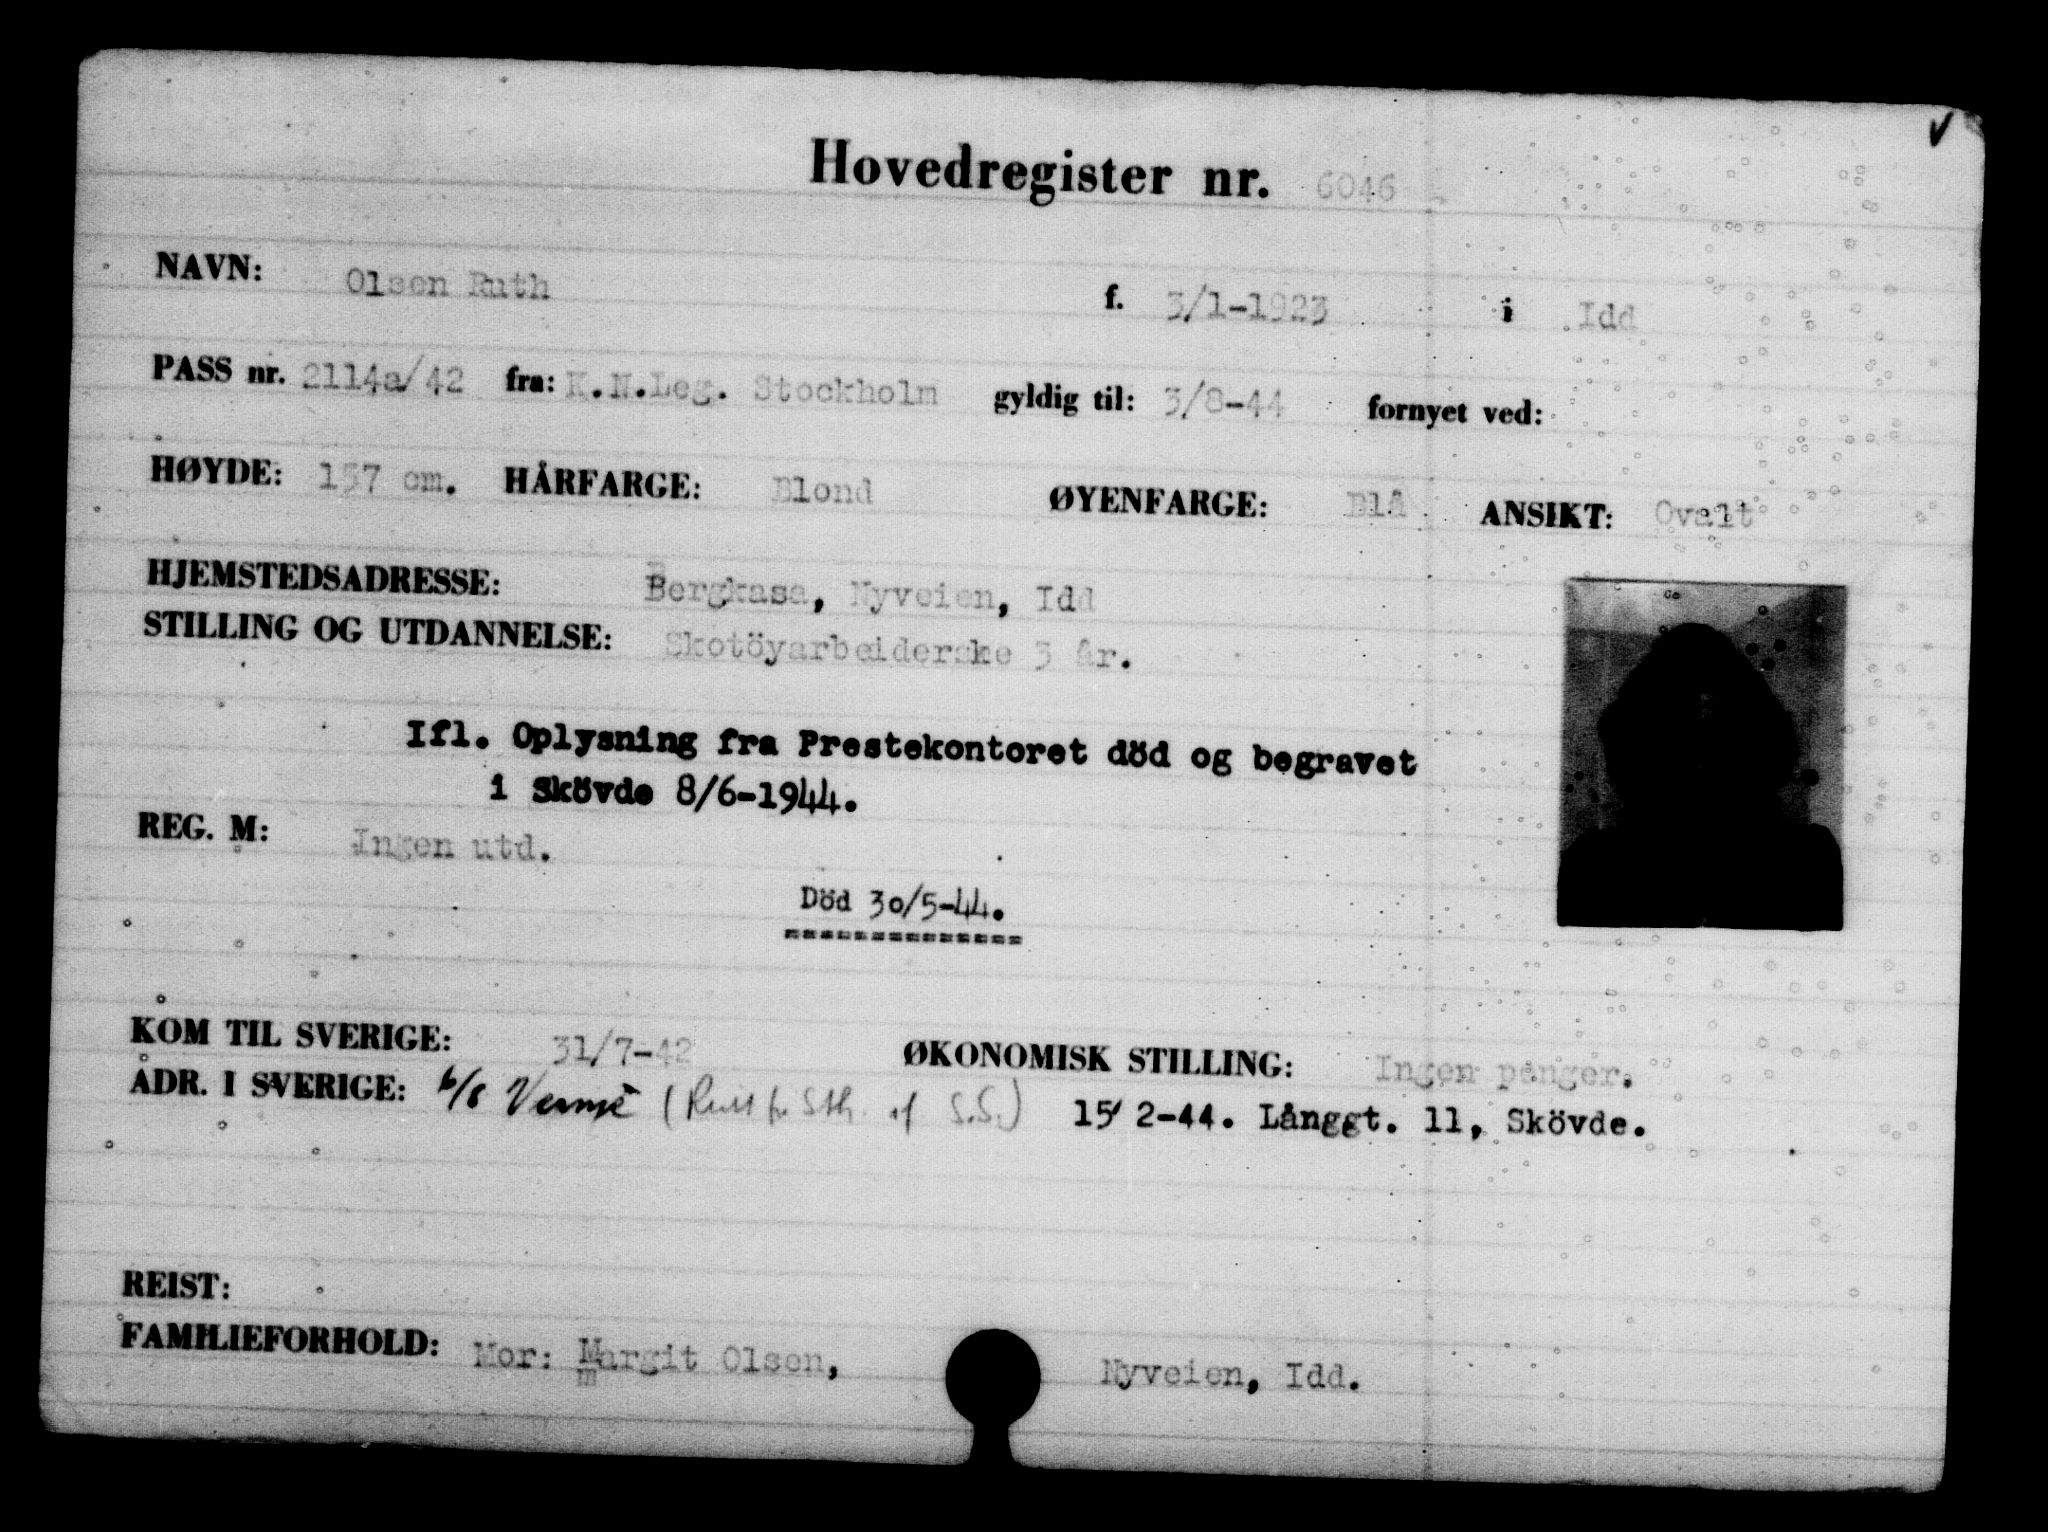 Hovedregister nr. 6046
NAVN: Olsen Ruth f. 3/1-1923 i Idd
PASS nr. 2114a/42 fra: K.N.Leg. Stockholm gyldig til: 3/8-44 fornyet ved:
HØYDE: 157 cm. HÅRFARGE: Blond ØYENFARGE: Blå ANSIKT: Ovalt
HJEMSTEDSADRESSE: Bergkasa, Nyveien, Idd
STILLING OG UTDANNELSE: Skotöyarbeiderske 3 år.
Ifl. Oplysning fra Prestekontoret död og begravet
i Skövde 8/6-1944.
REG. M: Ingen utd.
Död 30/5-44.
KOM TIL SVERIGE: 31/7-42 ØKONOMISK STILLING: Ingen penger.
ADR. I SVERIGE: 6/8 ( Sth. af S.S.) 15/2-44. Långgt. 11, Skövde.
REIST:
FAMILIEFORHOLD: Mor: Margit Olsen, Nyveien, Idd.